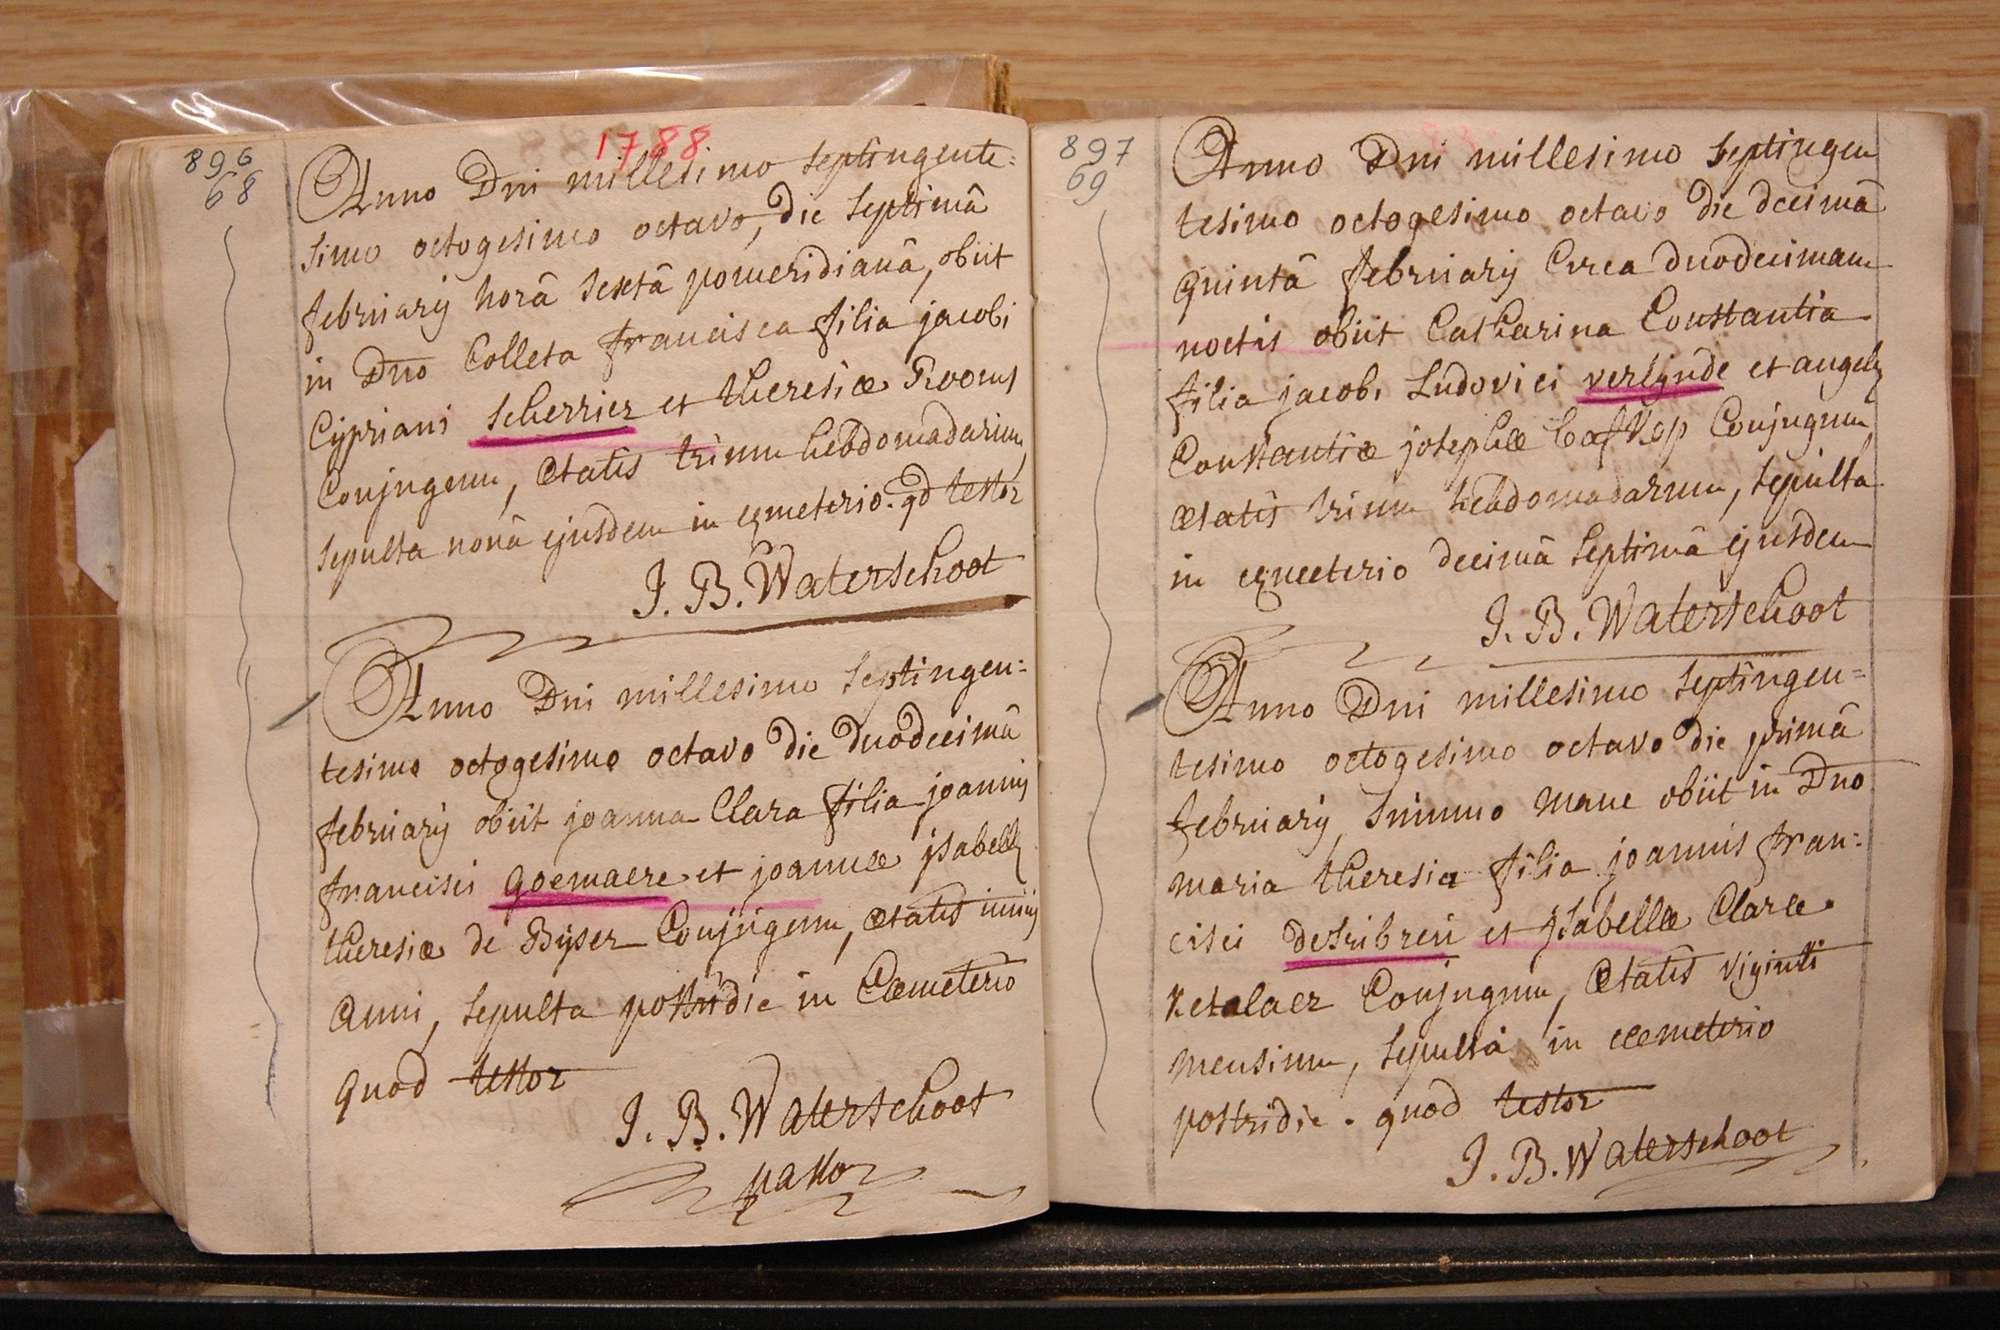 1788
896
68
Anno Dni millesimo septingente=
simo octogesimo octavo, die septimâ
februarij horâ sextâ pomeridianâ, obiit
in Dno Colleta francisca filia jacobi
Cypriani scherrier et theresiæ Rooms
Conjugum, ætatis trium hebdomadarum,
sepulta nonâ ejusdem in cæmeterio. qd testor
J. B. Waterschoot
Anno Dni millesimo septingen=
tesimo octogesimo octavo die duodecimâ
februarij obiit joanna Clara filia joannis
francisci goemaere et joannæ jsabellæ
theresiæ de Bijser Conjugum, ætatis unius
anni, sepulta postridie in Cæmeterio
quod testor
J. B. Waterschoot
pastor
897
69
Anno Dni millesimo septingen
tesimo octogesimo octavo die decimâ
quintâ februarij Circa duodecimam
noctis obiit Catharina Constantia
filia jacobi Ludovici verlijnde et angelæ
Constantiæ josephæ Conjugum
ætatis trium hebdomadarum, sepulta
in cæmeterio decimâ septimâ ejusdem
J. B. Waterschoot
Anno Dni millesimo septingen=
tesimo octogesimo octavo die primâ
februarij summo mane obiit in Dno
maria theresia filia joannis fran=
cisci et jsabellæ Claræ
Ketelaer Conjugum, ætatis viginti
mensium, sepulta in cæmeterio
postridie. quod testor
J. B. Waterschoot